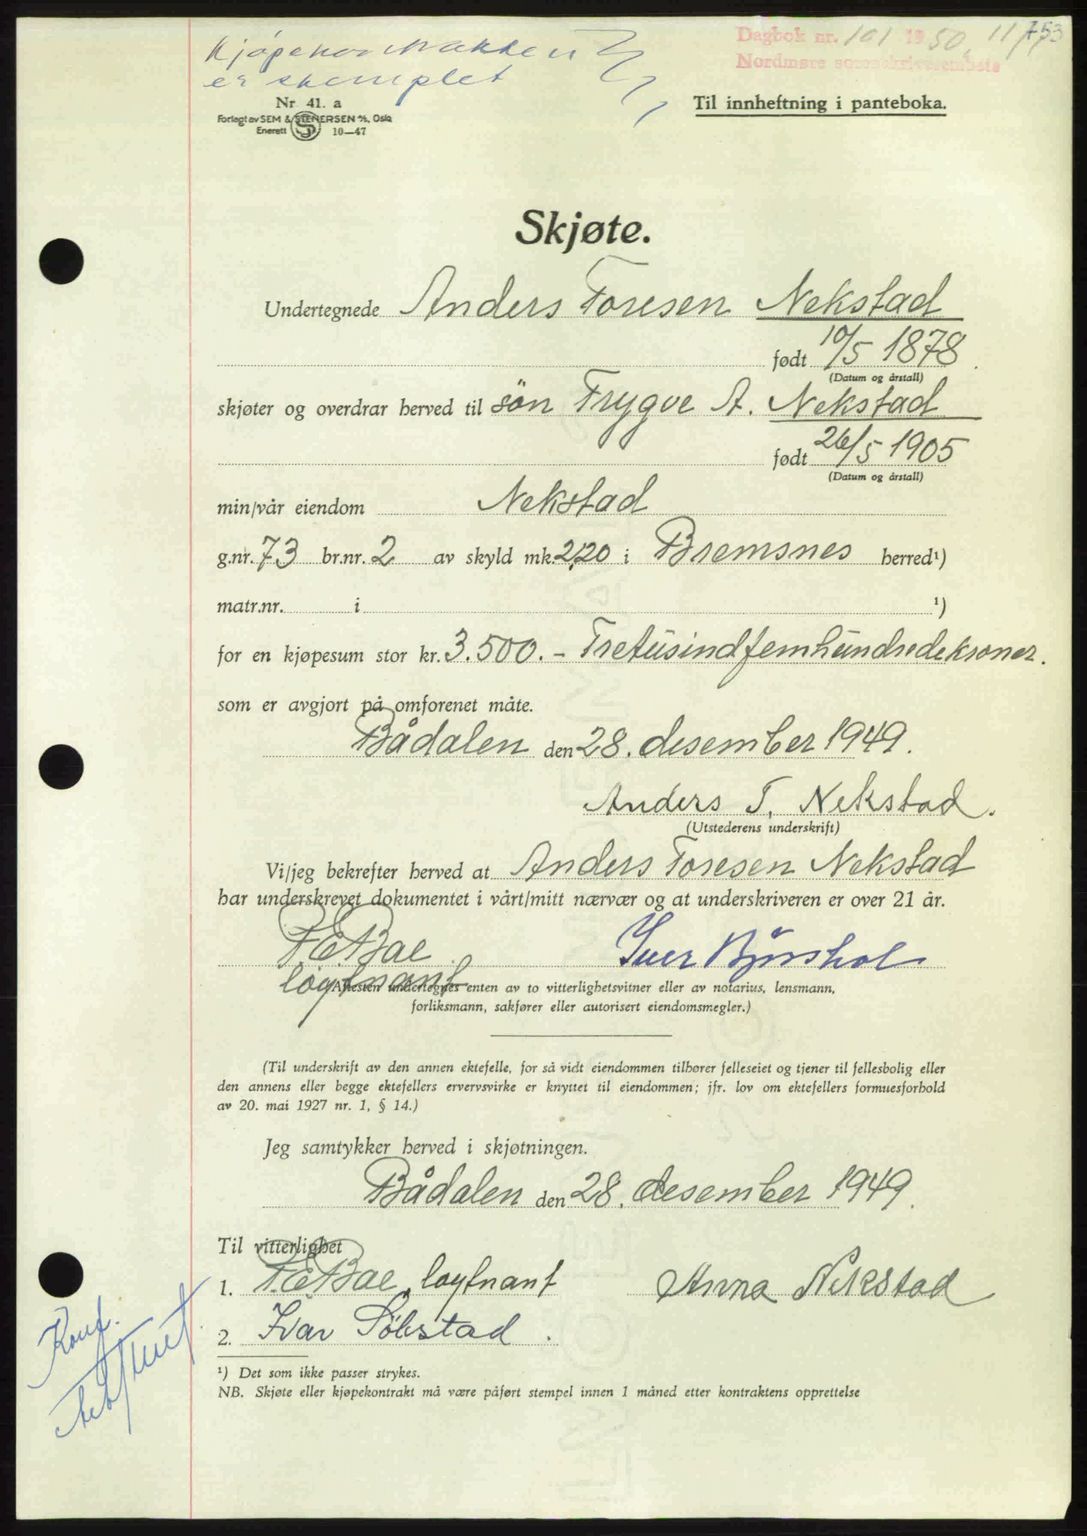 Kjøpekontrakten
er stemplet
Dagbok nr. 101 1950, 11/1
753
Nordmøre sorenskriverembete
Nr 41. a
Forlagt av SEM & STENERSEN A/S, Oslo
Enerett S 10—47
Til innheftning i panteboka.
Skjøte.
Undertegnede Anders Toresen Nekstad
født 10/5 1878
(Datum og årstall)
skjøter og overdrar herved til søn Trygve A. Nekstad
født 26/5 1905
(Datum og årstall)
min/vår eiendom Nekstad
g.nr. 73 br.nr. 2 av skyld mk. 2,20 i Bremsnes herred¹)
matr.nr. i ¹)
for en kjøpesum stor kr. 3.500.- Tretusindfemhundredekroner.
som er avgjort på omforenet måte.
Bådalen den 28. desember 1949.
Anders T. Nekstad.
(Utstederens underskrift)
Vi/jeg bekrefter herved at Anders Toresen Nekstad
har underskrevet dokumentet i vårt/mitt nærvær og at underskriveren er over 21 år.
P.E. Bae Iver Bjørshol
løytnant
(Attesten undertegnes enten av to vitterlighetsvitner eller av notarius, lensmann,
forliksmann, sakfører eller autorisert eiendomsmegler.)
(Til underskrift av den annen ektefelle, for så vidt eiendommen tilhører felleseiet og tjener til fellesbolig eller
den annens eller begge ektefellers ervervsvirke er knyttet til eiendommen; jfr. lov om ektefellers formuesforhold
av 20. mai 1927 nr. 1, § 14.)
Jeg samtykker herved i skjøtningen.
Bådalen den 28. desember 1949.
Til vitterlighet
1. P.E. Bae, løytnant Anna Nekstad
2. Ivar Sølstad.
Konf.
¹) Det som ikke passer strykes.
NB. Skjøte eller kjøpekontrakt må være påført stempel innen 1 måned etter kontraktens opprettelse